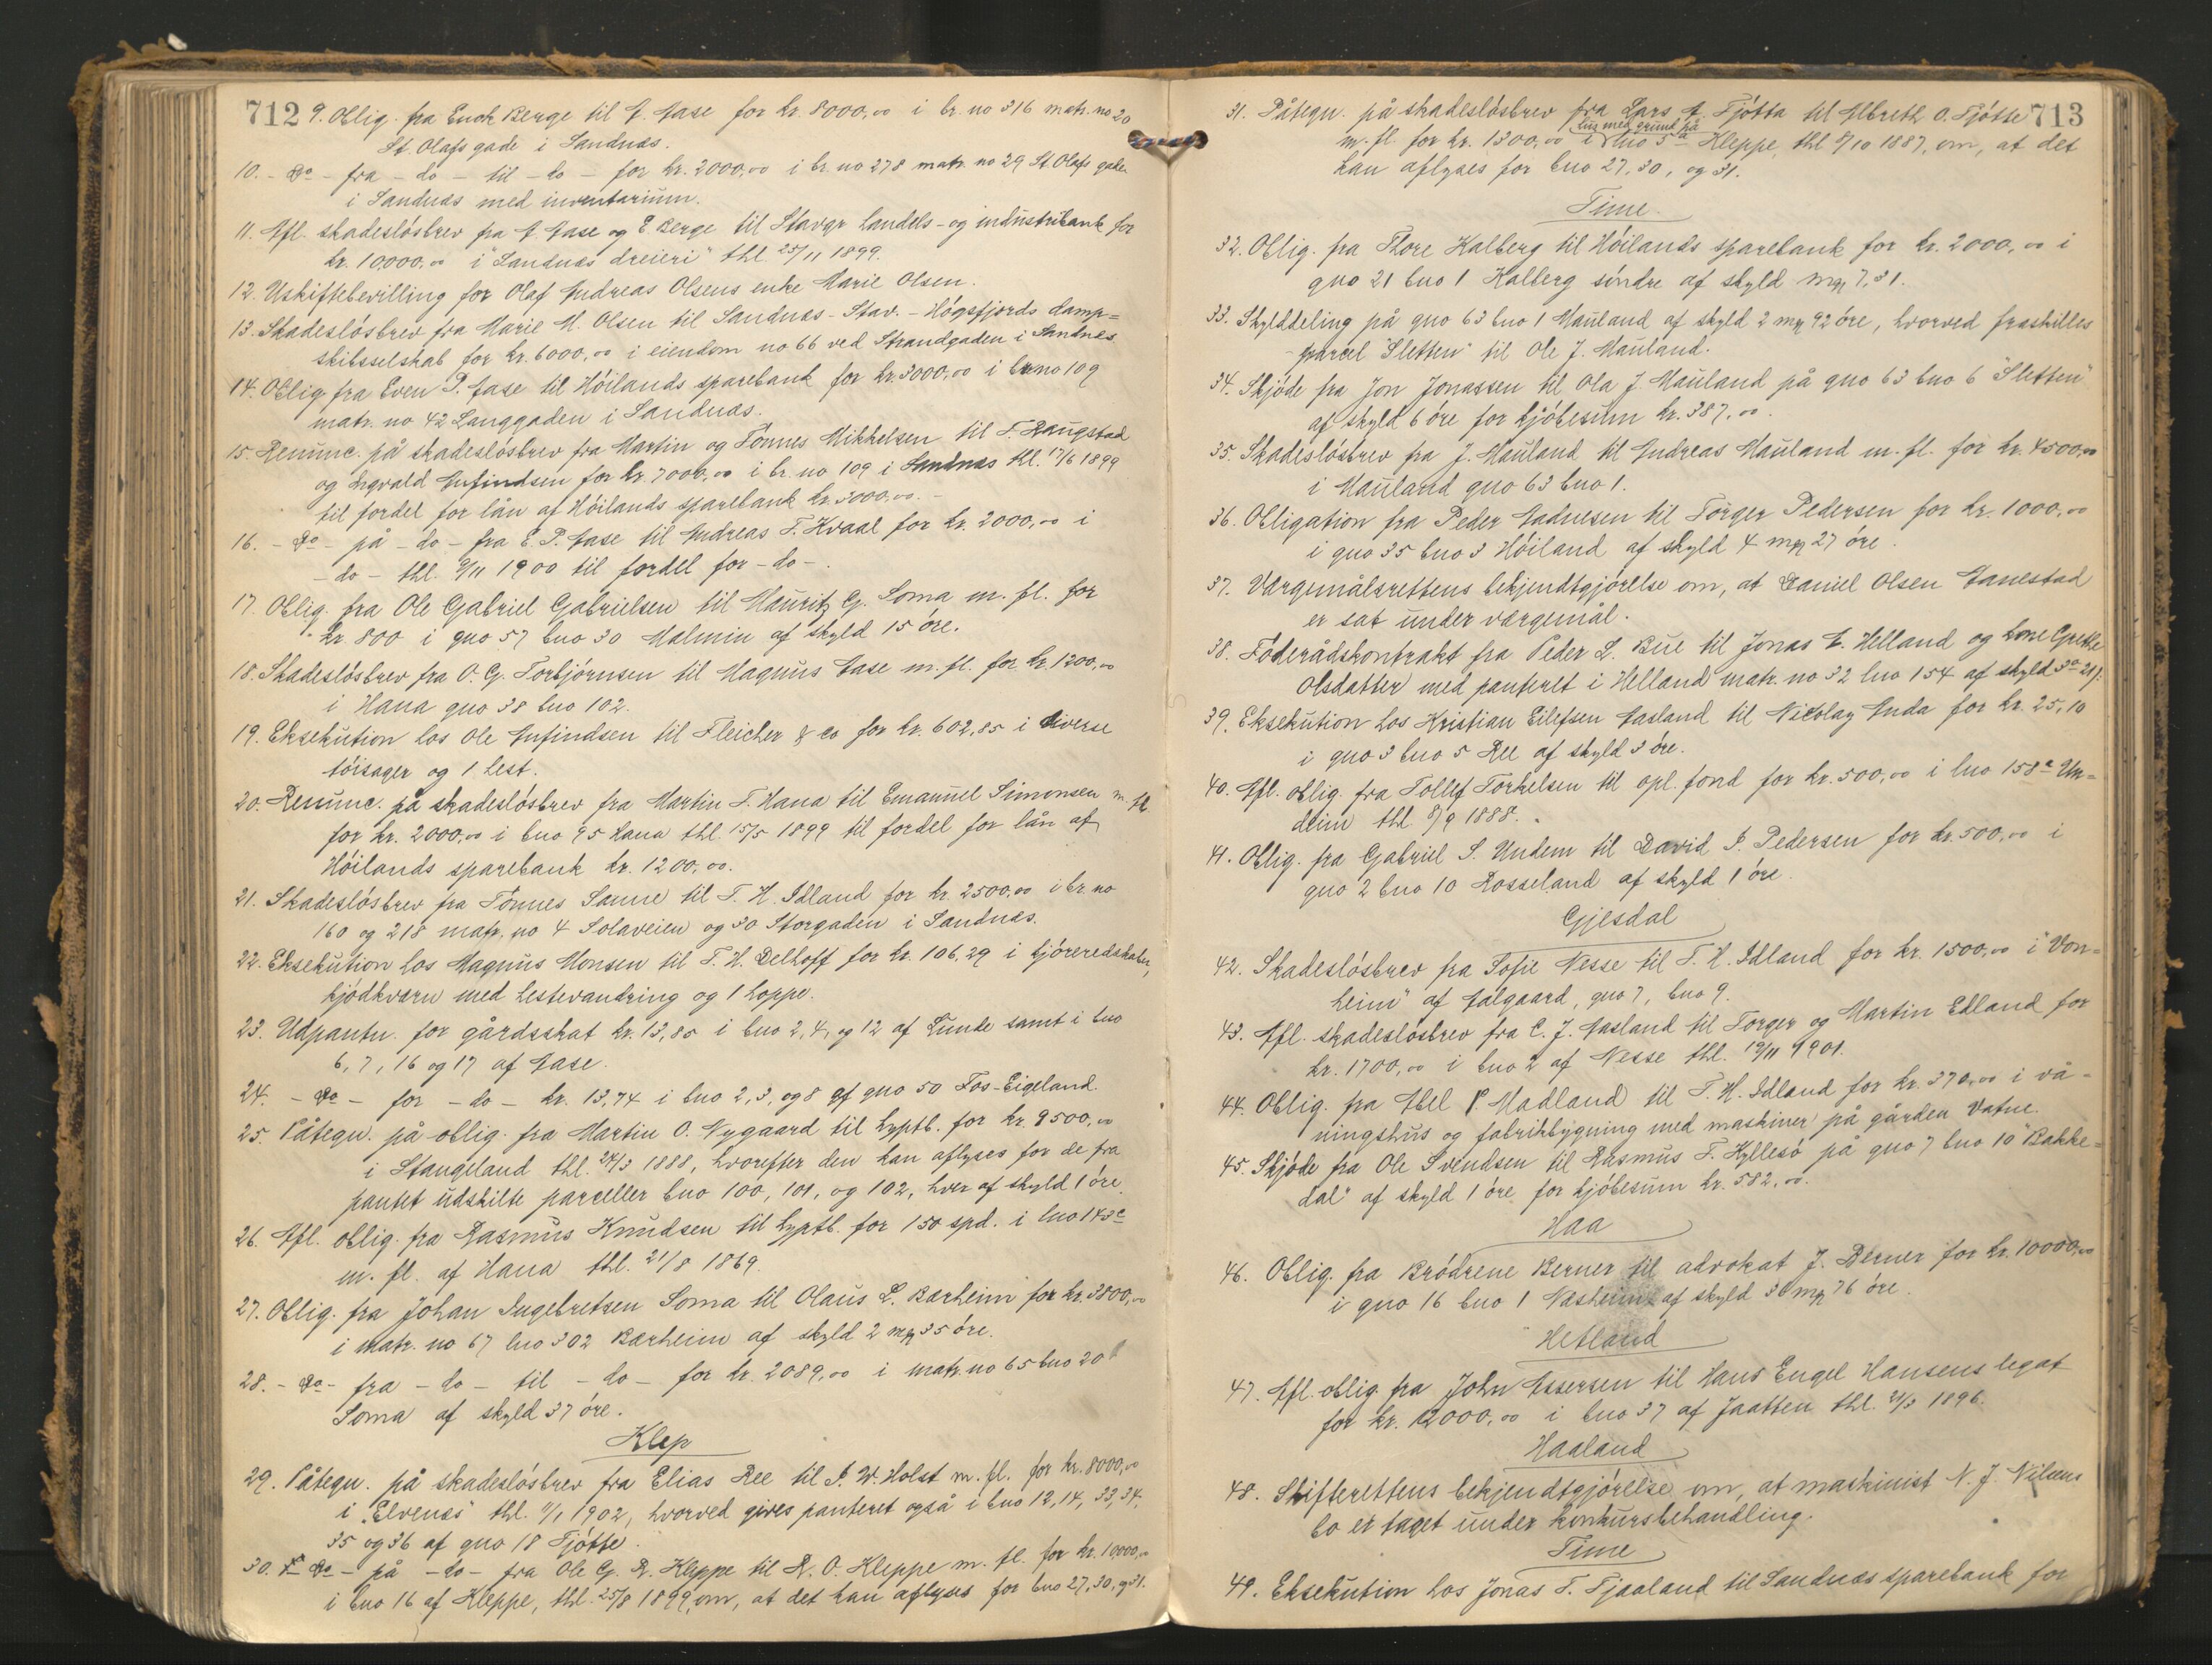 712
9. Oblig. fra Enok Berge til A. Aase for kr. 8000,00 i br. no 316 matr. no 20
St. Olafs gade i Sandnæs.
10. - Do - fra - do - til - do - for kr. 2000,00 i br. no 278 matr. no 29 St Olafs gade
i Sandnæs med inventarium.
11. Afl. skadesløsbrev fra A. Aase og E Berge til Stavgr handels- og industribank for
kr. 10,000,00 i "Sandnæs dreieri" thl. 25/11 1899.
12. Uskiftebevilling for Olaf Andreas Olsens enke Marie Olsen.
13. Skadesløsbrev fra Marie M. Olsen til Sandnæs-Stav.-Högsfjords damp=
skibsselskab for kr. 6000,00 i eiendom no 66 ved Strandgaden i Sandnes
14. Oblig fra Even P. Aase til Höilands sparebank for kr. 3000,00 i br no 109
matr. no 42 Langgaden i Sandnæs.
15. Renunc. på skadesløsbrev fra Martin og Tönnes Mikkelsen til T. Raugstad
og Ingvald Anfindsen for kr. 7000,00 i br. no 109 i Sandnæs thl. 17/6 1899
til fordel for lån af Höilands sparebank kr. 3000,00. -
16. - Do - på - do - fra E. P. Aase til Andreas T. Kvaal for kr. 2000,00 i
- do - thl. 9/11 1900 til fordel for - do - .
17. Oblig. fra Ole Gabriel Gabrielsen til Mauritz G. Soma m. fl. for
kr 800 i gno 57 bno 30 Malmin af skyld 15 öre.
18. Skadesløsbrev fra O. G. Torbjörnsen til Magnus Aase m. fl. for kr. 1200,00
i Hana gno 38 bno 102.
19. Eksekution hos Ole Anfindsen til Fleicher & Co for kr. 602,85 i diverse
töisager og 1 hest.
20. Renunc. på skadesløsbrev fra Martin T. Hana til Emanuel Simonsen m. fl.
for kr. 2000,00 i bno 95 Hana thl. 15/5 1899 til fordel for lån af
Höilands sparebank kr. 1200,00.
21. Skadesløsbrev fra Tönnes Sanne til T. H. Idland for kr. 2500,00 i br. no
160 og 218 matr. no 4 Solaveien og 30 Storgaden i Sandnæs.
22. Eksekution hos Magnus Monsen til T. H. Delhoff for kr. 106,29 i kjöreredskaber,
kjödkværn med hestevandring og 1 hoppe.
23. Udpantn. for gårdsskat kr. 13,85 i bno 2, 4, og 12 af Lunde samt i bno
6, 7, 16 og 17 af Aase.
24. - Do - for - do - kr. 13,74 i bno 2, 3, og 8 af gno 50 Fos-Eigeland.
25. Påtegn. på oblig. fra Martin O. Nygaard til hyptb. for kr. 9500,00
i Stangeland thl. 24/3 1888, hvorefter den kan aflyses for de fra
pantet udskilte parceller bno 100, 101, og 102, hver af skyld 1 öre.
26. Afl. oblig. fra Rasmus Knudsen til hyptb. for 150 spd. i lno 143c
m. fl. af Hana thl. 21/8 1869.
27. Oblig. fra Johan Ingebretsen Soma til Olaus L. Bærheim for kr. 3800,00
i matr. no 67 lno 302 Bærheim af skyld 2 mrk 35 öre.
28. - Do - fra - do - til - do - for kr. 2089,00 i matr. no 65 bno 20
Soma af skyld 37 öre.
Klep
29. Påtegn. på skadesløsbrev fra Elias Ree til I. W. Holst m. fl. for kr. 8000,00
i "Elvenæs" thl. 11/1 1902, hvorved gives panteret også i bno 12, 14, 33, 34,
35 og 36 af gno 18 Tjötte.
30. - Do - på - do - fra Ole G. R. Kleppe til R. O. Kleppe m. fl. for kr. 10000,00
i bno 16 af Kleppe, thl. 25/8 1899, om, at det kan aflyses for bno 27, 30, og 31.
713
31. Påtegn. på skadesløsbrev fra Lars A. Tjötta til Albreth O. Tjötte
hus med grund på
m. fl. for kr. 1300,00 i lno 5a Kleppe, thl 8/10 1887, om, at det
kan aflyses for bno 27, 30, og 31.
Time.
32. Oblig. fra Thore Kalberg til Höilands sparebank for kr. 2000,00 i
gno 21 bno 1 Kalberg söndre af skyld mrk 7,31.
33. Skylddeling på gno 63 bno 1 Mauland af skyld 2 mrk 92 öre, hvorved fraskilles
parcel "Sletten" til Ole J. Mauland.
34. Skjöde fra Jon Jonassen til Ola J. Mauland på gno 63 bno 6 "Sletten"
af skyld 6 öre for kjöbesum kr. 387,00.
35. Skadesløsbrev fra J. Mauland til Andreas Mauland m. fl. for kr. 4500,00
i Mauland gno 63 bno 1.
36. Obligation fra Peder Aadnesen til Torger Pedersen for kr. 1000,00
i gno 35 bno 3 Höiland af skyld 4 mrk 27 öre.
37. Værgemålsrettens bekjendtgjörelse om, at Daniel Olsen Aanestad
er sat under værgemål.
38. Föderådskontrakt fra Peder L. Bue til Jonas A. Helland og kone Grethe
Olsdatter med panteret i Helland matr. no 32 lno 154 af skyld
39. Eksekution hos Kristian Eilefsen Aasland til Nikolay Anda for kr. 25,10
i gno 3 bno 5 Ree af skyld 3 öre.
40. Afl. oblig. fra Tollef Torkelsen til opl. fond for kr. 500,00 i lno 158a Un=
dheim thl 8/9 1888.
41. Oblig. fra Gabriel S. Undem til David I. Pedersen for kr. 500,00 i
gno 2 bno 10 Rosseland af skyld 1 öre.
Gjesdal
42. Skadesløsbrev fra Tofie Nesse til T. H. Idland for kr. 1500,00 i "Von=
heim" af Aalgaard, gno 7, bno 9.
43. Afl. skadesløsbrev fra C. J. Aasland til Torger og Martin Edland for
kr. 1700,00 i bno 2 af Nesse thl. 19/11 1901.
44. Oblig. fra Abel P. Madland til T. H. Idland for kr. 370,00 i vå-
ningshus og fabrikbygning med maskiner på gården Vatne.
45. Skjöde fra Ole Svendsen til Rasmus T. Hyllesö på gno 7 bno 10 "Bakke=
dal" af skyld 1 öre for kjöbesum kr. 582,00.
Haa
46. Oblig. fra Brödrene Berner til advokat J. Berner for kr. 10000,00
i gno 16 bno 1 Næsheim af skyld 30 mrk 76 öre.
Hetland
47. Afl. oblig. fra John Assersen til Hans Engel Hansens legat
for kr. 12000,00 i bno 37 af Jaatten thl. 21/3 1896.
Haaland
48. Skifterettens bekjendtgjörelse om, at maskinist N. J. Nilsens
bo er taget under konkursbehandling.
Time
49. Eksekution hos Jonas T. Tjaaland til Sandnæs sparebank for